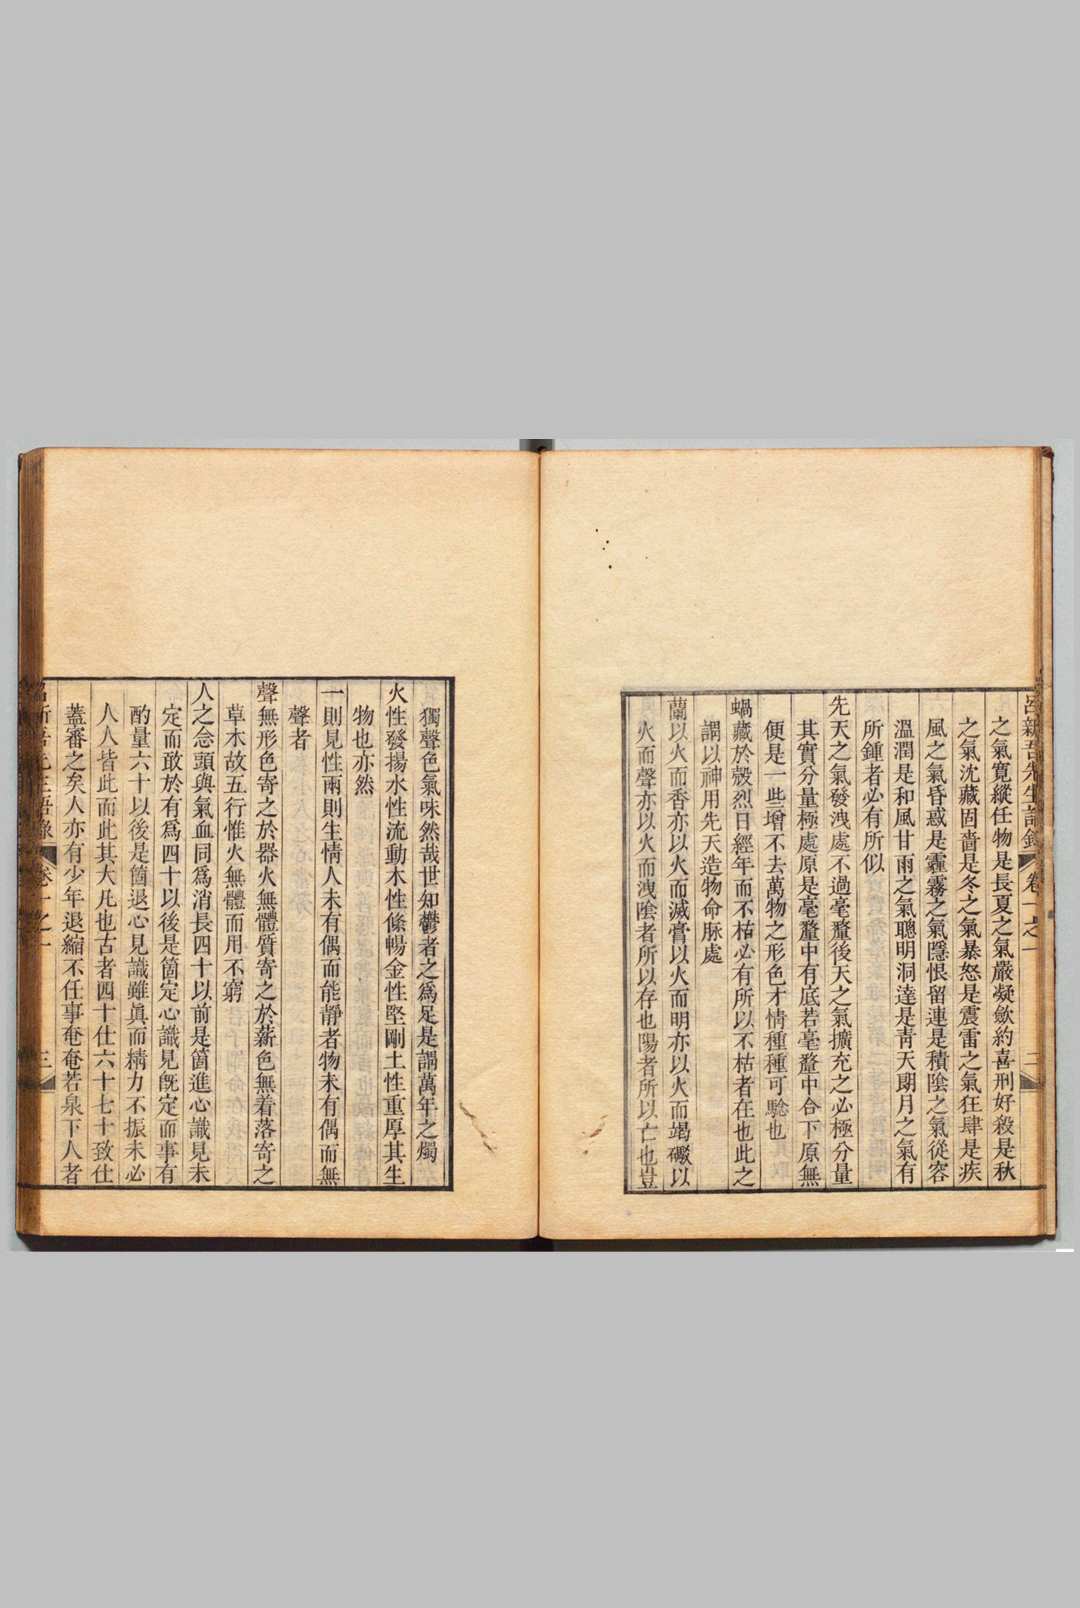 呂新吾先生語錄 卷一之一 二
之氣寬縱任物是長夏之氣嚴凝斂約喜刑好殺是秋
之氣沈藏固嗇是冬之氣暴怒是震雷之氣狂肆是疾
風之氣昏惑是霾霧之氣隱恨留連是積陰之氣從容
溫潤是和風甘雨之氣聰明洞達是靑天朗月之氣有
所鍾者必有所似
先天之氣發洩處不過毫釐後天之氣擴充之必極分量
其實分量極處原是毫釐中有底若毫釐中合下原無
便是一些增不去萬物之形色才情種種可騐也
蝸藏於殼烈日經年而不枯必有所以不枯者在也此之
謂以神用先天造物命脈處
蘭以火而香亦以火而滅膏以火而明亦以火而竭礮以
火而聲亦以火而洩陰者所以存也陽者所以亡也豈
獨聲色氣味然哉世知鬱者之爲足是謂萬年之燭
火性發揚水性流動木性條暢金性堅剛土性重厚其生
物也亦然
一則見性兩則生情人未有偶而能靜者物未有偶而無
聲者
聲無形色寄之於器火無體質寄之於薪色無着落寄之
草木故五行惟火無體而用不窮
人之念頭與氣血同爲消長四十以前是箇進心識見未
定而敢於有爲四十以後是箇定心識見旣定而事有
酌量六十以後是箇退心見識雖眞而精力不振未必
人人皆此而此其大凡也古者四十仕六十七十致仕
蓋審之矣人亦有少年退縮不任事奄奄若泉下人者
呂新吾先生語錄 卷一之一 三